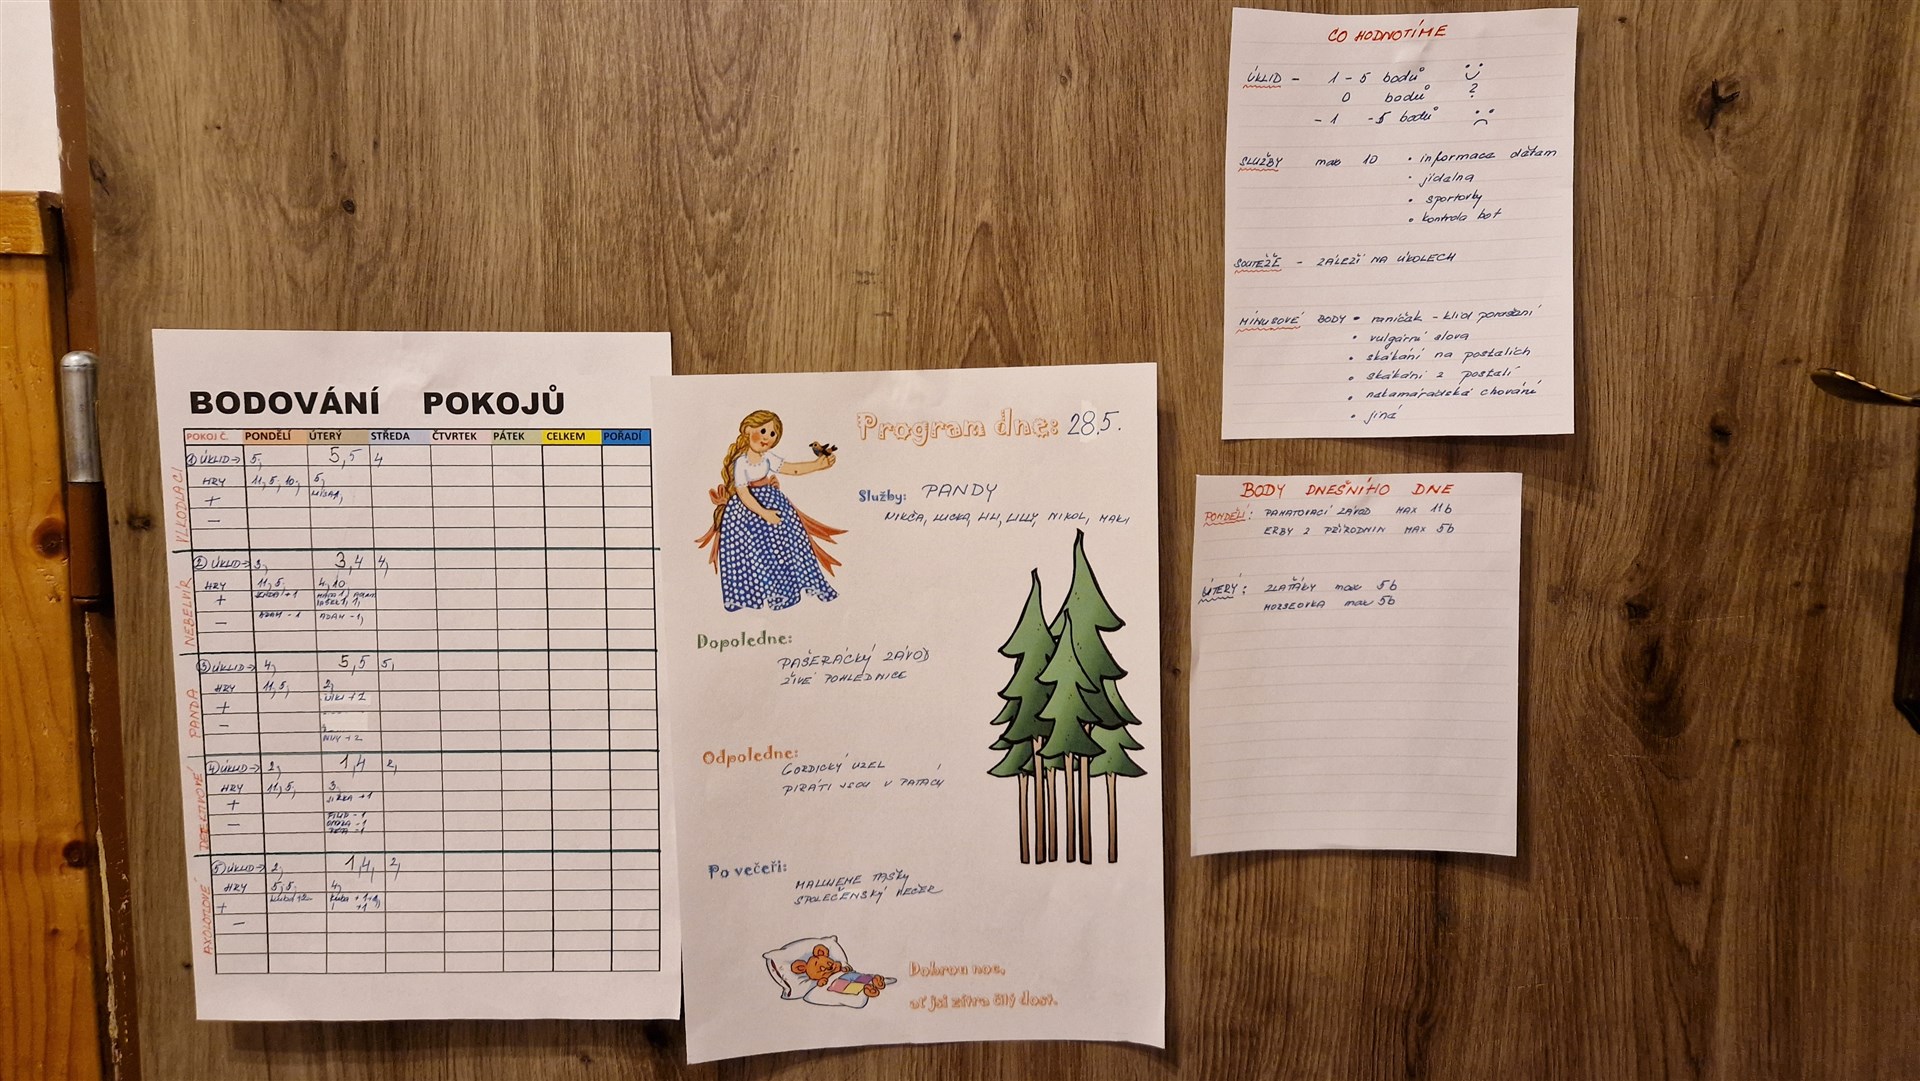 BODOVÁNÍ POKOJŮ
POKOJ Č. PONDĚLÍ ÚTERÝ STŘEDA ČTVRTEK PÁTEK CELKEM POŘADÍ
VLKODLACI
① ÚKLID → 5, 5,5 4
HRY 11, 5, 10, 5,
+
-
NEBELVÍR
② ÚKLID → 3, 3,4 4,
HRY 11, 5, 4, 10
+ +1
- ADAM -1 ADAM -1,
PANDA
③ ÚKLID → 4, 5,5 5,
HRY 11, 5, 2,
+
-
DETEKTIVOVÉ
④ ÚKLID → 2, 1,4 2,
HRY 11, 5, 3,
+ JIRKA +1
- FILIP -1
-1
-1
AXOLOTLOVÉ
⑤ ÚKLID → 2, 1,4, 2,
HRY 5, 5, 4,
+
-
Program dne: 28.5.
Služby: PANDY
NIKČA, LUCKA, LILI, LILLY, NIKOL, MAKI
Dopoledne:
PAŠERÁCKÝ ZÁVOD
ŽIVÉ POHLEDNICE
Odpoledne:
GORDICKÝ UZEL
PIRÁTI JSOU V PATÁCH
Po večeři:
MALUJEME TAŠKY
SPOLEČENSKÝ VEČER
Dobrou noc,
ať jsi zítra čilý dost.
CO HODNOTÍME
ÚKLID - 1 - 5 bodů
0 bodů ?
-1 -5 bodů
SLUŽBY max 10 • informace dětem
• jídelna
• sportovky
• kontrola bot
SOUTĚŽE - ZÁLEŽÍ NA ÚKOLECH
MÍNUSOVÉ BODY • raníček - klid porušení
• vulgární slova
• skákání na postelích
• skákání z postelí
• nekamarádské chování
• jiné
BODY DNEŠNÍHO DNE
PONDĚLÍ: PAMATOVACÍ ZÁVOD MAX 11b
ERBY Z PŘÍRODNIN MAX 5b
ÚTERÝ: ZLAŤÁKY max 5b
MORSEOVKA max 5b